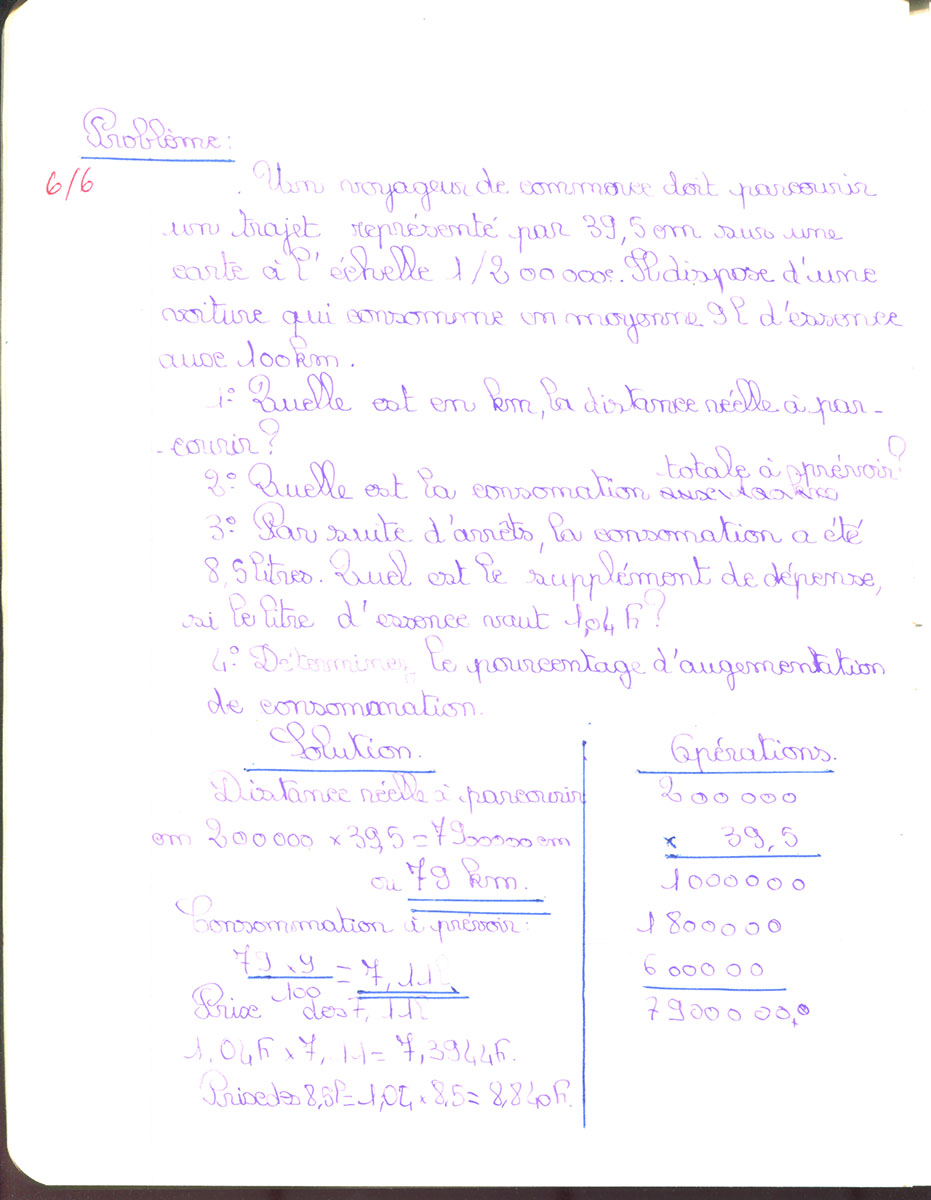 Problème:
6/6
Un voyageur de commerce doit parcourir
un trajet représenté par 39,5 cm sur une
carte à l'échelle 1/200000e. Il dispose d'une
voiture qui consomme en moyenne 9l d'essence
aux 100km.
1° Quelle est en km, la distance réelle à par-
-courir?
totale à prévoir?
2° Quelle est la consomation
3° Par suite d'arrêts, la consomation a été
8,5 litres. Quel est le supplément de dépense,
si le litre d'essence vaut 1,04 F?
4° Déterminez le pourcentage d'augementation
de consommation.
Solution.
Distance réelle à parcourir
en 200000 × 39,5 = 7900000 cm
ou 79 km.
Consommation à prévoir:
79 × 9 = 7,11l
100
Prix des 7,11l
1,04F × 7,11 = 7,3944F.
Prix des 8,5l = 1,04 × 8,5 = 8,840F.
Opérations.
200000
× 39,5
1000000
1800000
600000
7900000,0